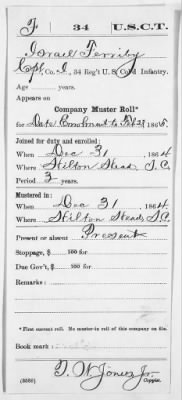 F 34 U.S.C.T.
Israel Ferriby
Cpl, Co. I, 34 Reg't U.S. Col'd Infantry.
Age years.
Appears on
Company Muster Roll*
for Date Enrolment to Feb 28, 1865.
Joined for duty and enrolled:
When Dec 31, 1864.
Where Hilton Head S.C.
Period 3 years.
Mustered in:
When Dec 31, 1864.
Where Hilton Head S.C.
Present or absent Present
Stoppage, $ 100 for
Due Gov't, $ 100 for
Remarks:
*First current roll. No muster-in roll of this company on file.
Book mark:
T. W. Jones Jr.
Copyist.